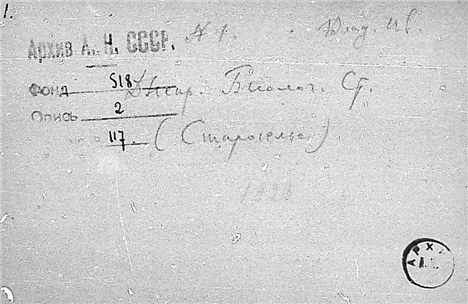 1.
Архив А. Н. СССР. № 1. Влад. Ив.
Фонд 518 Днепр. Биолог. Ст.
Опись 2
117. (Староселье).
1920
АРХ